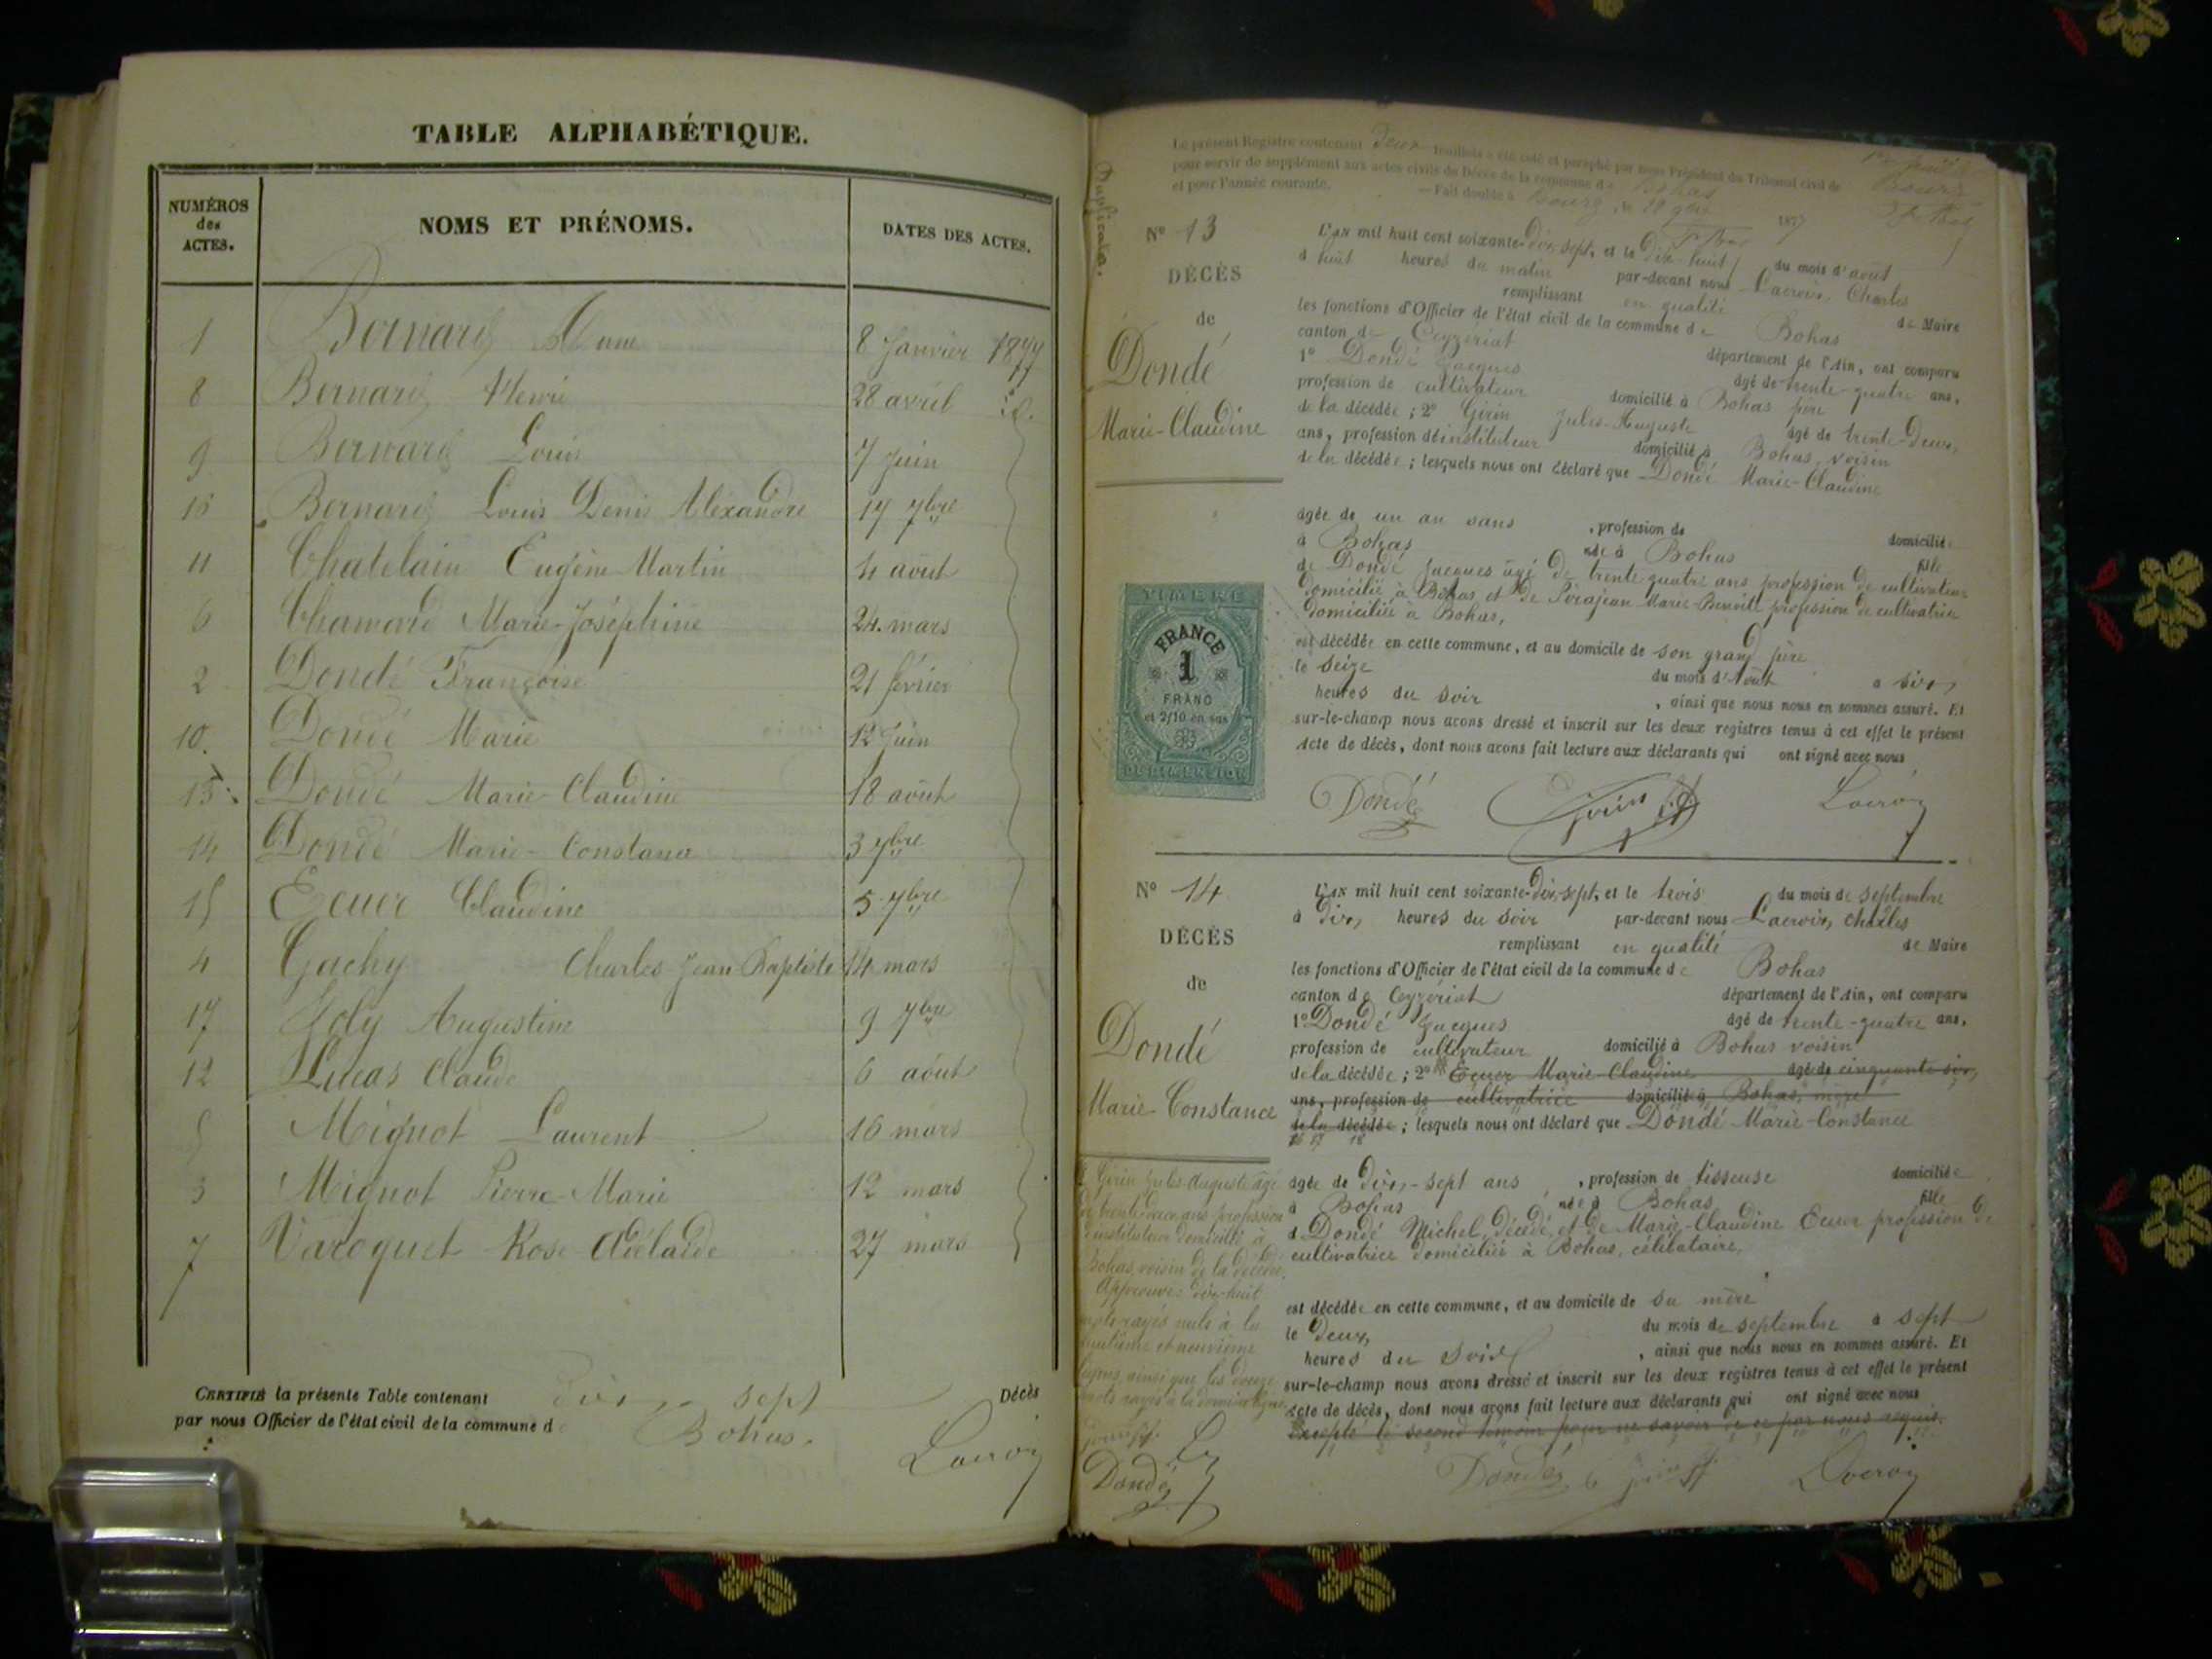 TABLE ALPHABÉTIQUE.
NUMÉROS
des
ACTES.
NOMS ET PRÉNOMS.
DATES DES ACTES.
1 Bernard 8 Janvier 1877
8 Bernard Henri 28 avril id.
9 Bernard Louis 7 Juin
16 Bernard Louis Denis Alexandre 17 7bre
11 Chatelain Eugène Martin 4 août
6 Chamard Marie-Joséphine 24 mars
2 Dondé Françoise 21 février
10. Dondé Marie 12 Juin
13 Dondé Marie-Claudine 18 août
14 Dondé Marie-Constance 3 7bre
15 Ecuer Claudine 5 7bre
4 Gachy Charles Jean-Baptiste 14 mars
17 Joly Augustine 9 7bre
12 Lucas Claude 6 août
5 Mignot Laurent 16 mars
3 Mignot Pierre-Marie 12 mars
7 Varoquet Rose-Adélaïde 27 mars
CERTIFIÉ la présente Table contenant dix-sept Décès
par nous Officier de l'état civil de la commune de Bohas.
Lacroix
Duplicata.
Le présent Registre contenant Deux feuillets a été coté et paraphé par nous Président du Tribunal civil de Bourg
pour servir de supplément aux actes civils de Décès de la commune de Bohas
et pour l'année courante. — Fait double à Bourg, le 1877
N° 13
DÉCÈS
de
Dondé
Marie-Claudine
L'AN mil huit cent soixante-dix-sept, et le dix-huit du mois d'août
à huit heures du matin par-devant nous Lacroix, Charles
remplissant en qualité de Maire
les fonctions d'Officier de l'état civil de la commune de Bohas
canton de Ceyzeriat département de l'Ain, ont comparu
1° Dondé Jacques âgé de trente-quatre ans,
profession de cultivateur domicilié à Bohas père
de la décédée ; 2° Girin Jules-Auguste âgé de trente-deux
ans, profession d'instituteur domicilié à Bohas, voisin
de la décédée ; lesquels nous ont déclaré que Dondé Marie-Claudine
âgée de un an sans , profession de domiciliée
à Bohas née à Bohas fille
de Dondé Jacques âgé de trente quatre ans profession de cultivateur
domicilié à Bohas et de Marie-Benoite profession de cultivatrice
domiciliée à Bohas,
est décédée en cette commune, et au domicile de son grand père
le seize du mois d'Août à six
heures du soir , ainsi que nous nous en sommes assuré. Et
sur-le-champ nous avons dressé et inscrit sur les deux registres tenus à cet effet le présent
Acte de décès, dont nous avons fait lecture aux déclarants qui ont signé avec nous
Dondé Girin Lacroix
TIMBRE
FRANCE
1
FRANC
et 2/10 en sus
DE DIMENSION
N° 14
DÉCÈS
de
Dondé
Marie-Constance
L'AN mil huit cent soixante-dix-sept, et le trois du mois de septembre
à dix heures du soir par-devant nous Lacroix, Charles
remplissant en qualité de Maire
les fonctions d'Officier de l'état civil de la commune de Bohas
canton de Ceyzériat département de l'Ain, ont comparu
1° Dondé Jacques âgé de trente-quatre ans,
profession de cultivateur domicilié à Bohas voisin
de la décédée ; 2° Ecuer Marie-Claudine âgé de cinquante-six
ans, profession de cultivatrice domicilié à Bohas, mère
de la décédée ; lesquels nous ont déclaré que Dondé Marie-Constance
16 17 18
âgée de dix-sept ans , profession de tisseuse domiciliée
à Bohas née à Bohas fille
de Dondé Michel, décédé, et de Marie-Claudine Ecuer profession de
cultivatrice domiciliée à Bohas, célibataire,
est décédée en cette commune, et au domicile de sa mère
le deux, du mois de septembre à sept
heures du soir , ainsi que nous nous en sommes assuré. Et
sur-le-champ nous avons dressé et inscrit sur les deux registres tenus à cet effet le présent
Acte de décès, dont nous avons fait lecture aux déclarants qui ont signé avec nous
Excepté le second témoin pour ne savoir de ce par nous requis.
Dondé Girin Lacroix
Girin Jules-Auguste âgé
de trente-deux ans profession
d'instituteur domicilié à
Bohas, voisin de la décédée.
Approuvés dix-huit
mots rayés nuls à la
huitième et neuvième
lignes ainsi que les douze
mots rayés à la dernière ligne
Dondé